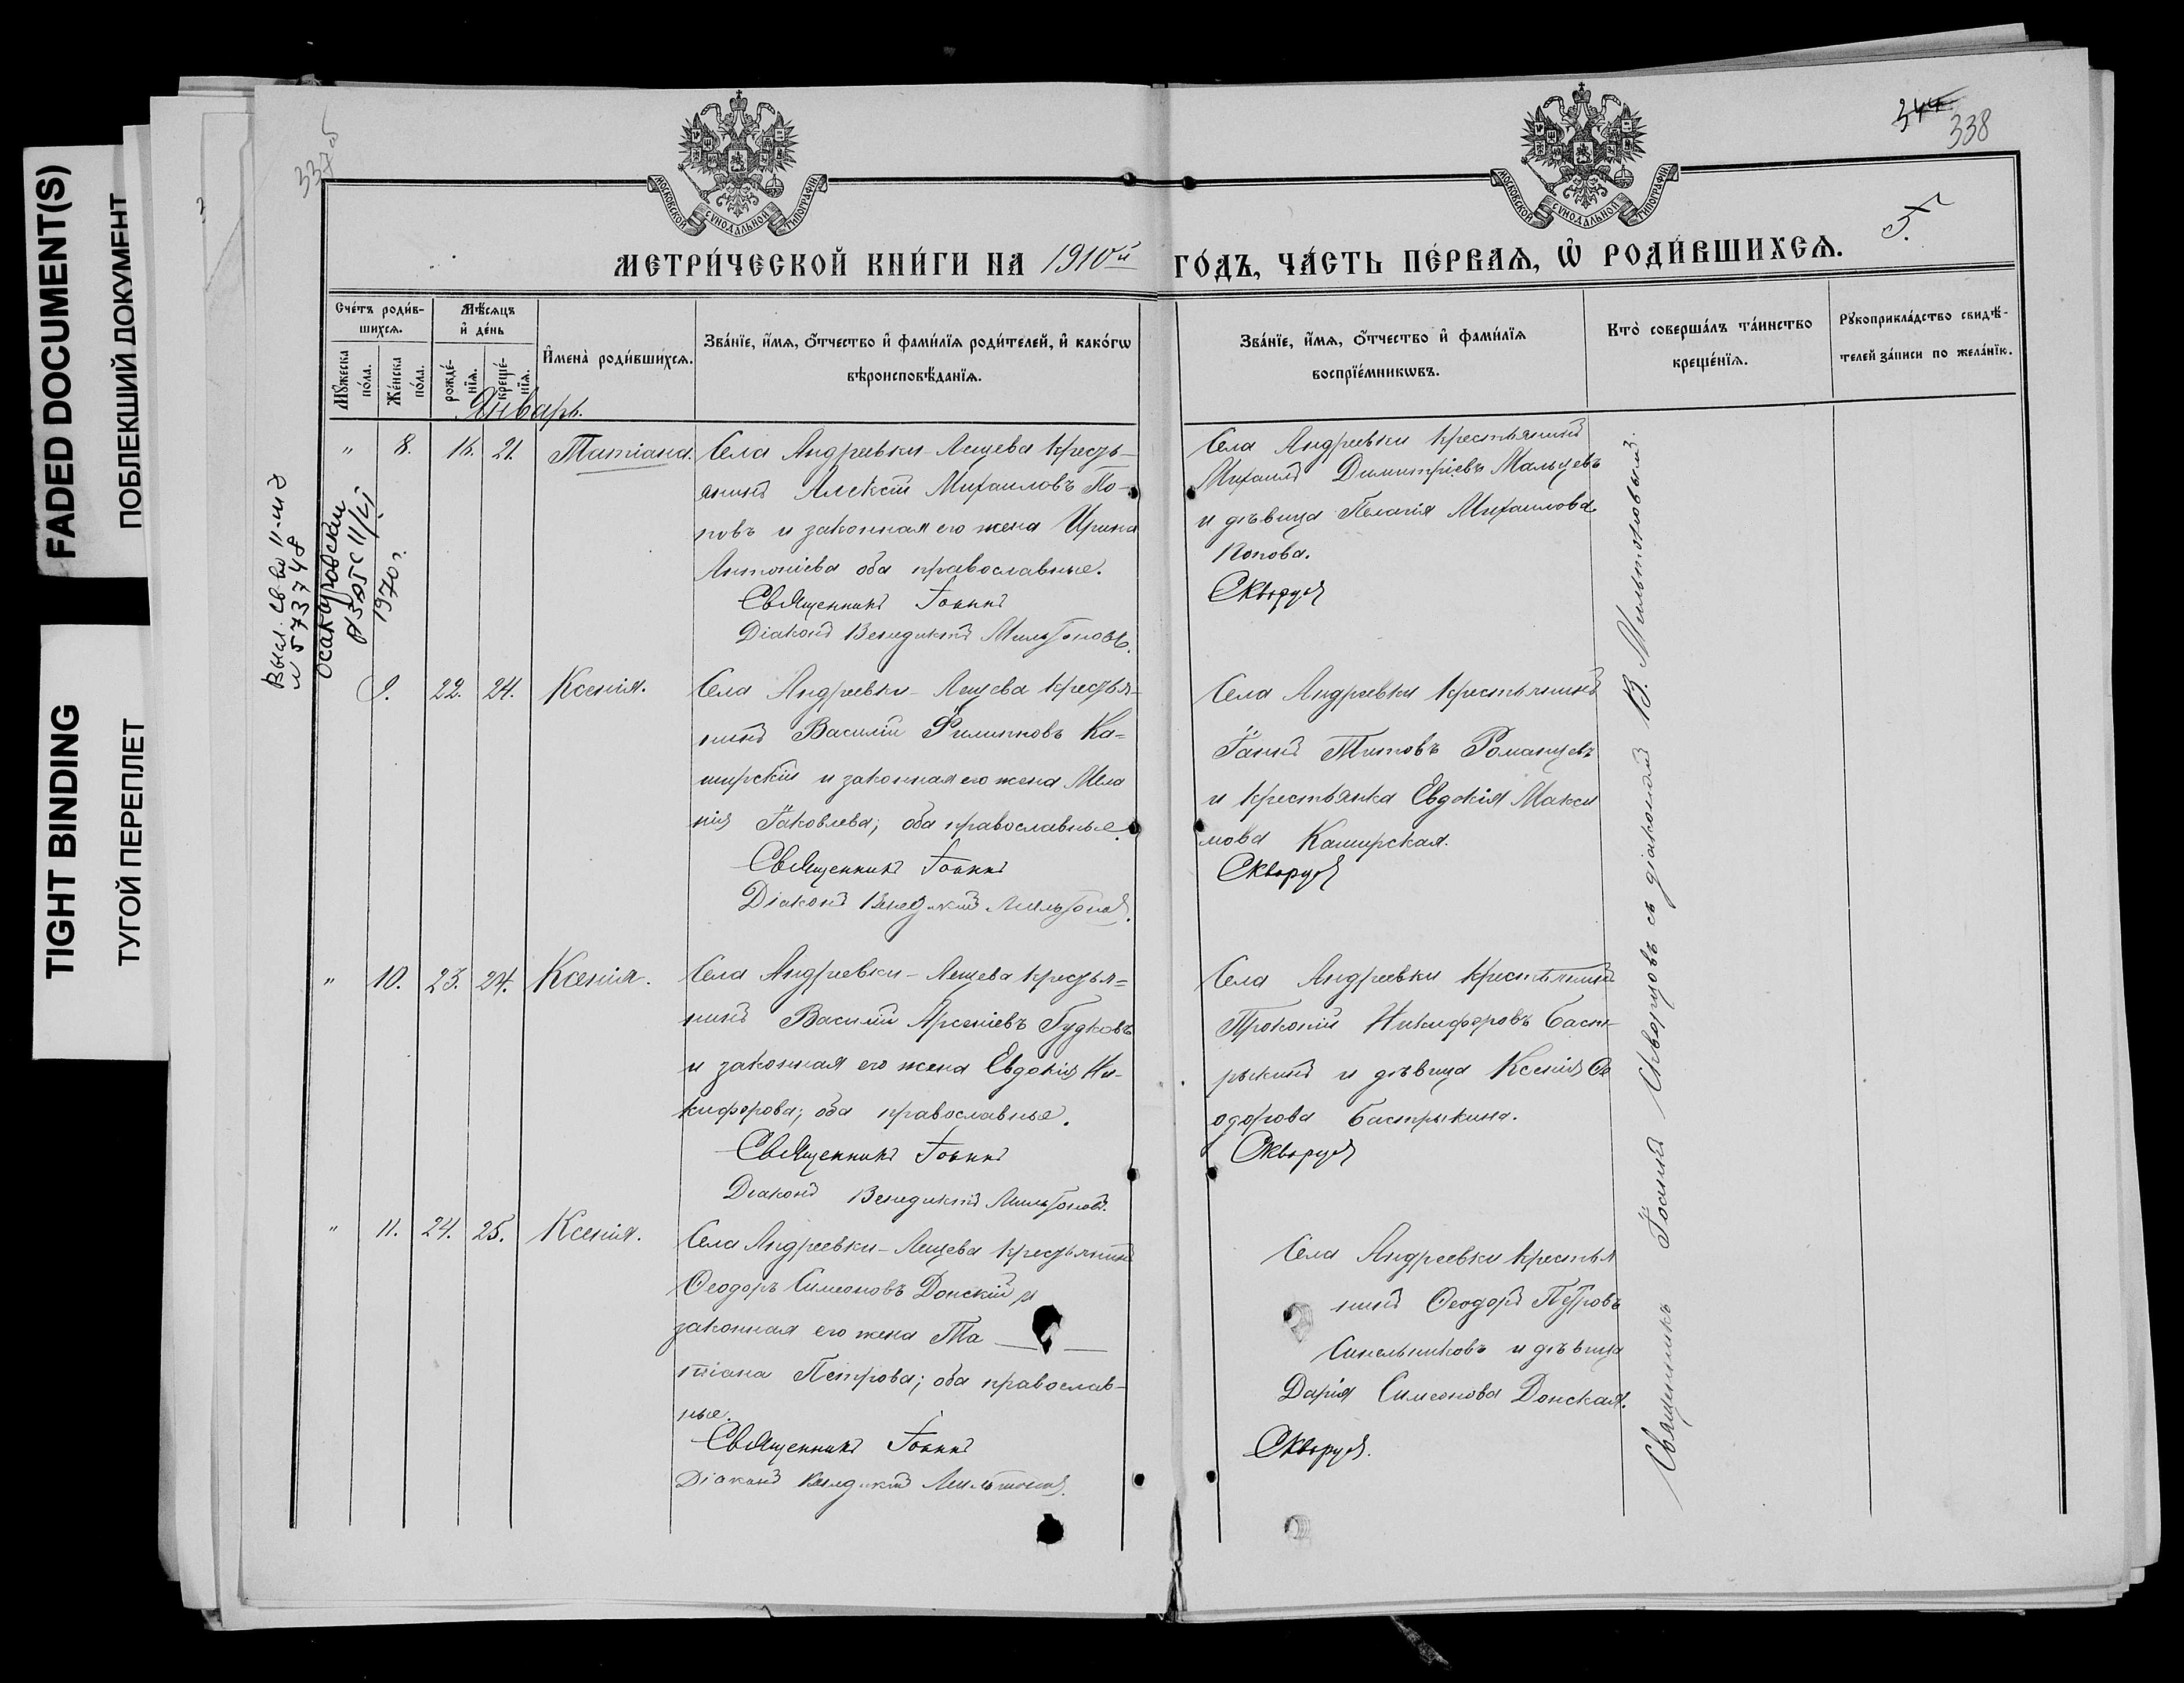 FADED DOCUMENT(S)
ПОБЛЕКШИЙ ДОКУМЕНТ
TIGHT BINDING
ТУГОЙ ПЕРЕПЛЕТ
337об
344
338
5.
МОСКОВСКОЙ СѴНОДАЛЬНОЙ ТИПОГРАФІИ
МОСКОВСКОЙ СѴНОДАЛЬНОЙ ТИПОГРАФІИ
МЕТРИ́ЧЕСКОЙ КНИ́ГИ НА 1910й ГО́ДЪ, ЧА́СТЬ ПЕ́РВАѦ, Ѡ҆ РОДИ́ВШИХСѦ.
Сче́тъ роди́в-
шихсѧ.
Мꙋ́жеска
по́ла.
Же́нска
по́ла.
Мѣ́сѧцъ
и҆ де́нь
рожде́-
нїѧ.
креще́-
нїѧ.
И҆мена̀ роди́вшихсѧ.
Зва́нїе, и҆́мѧ, ѻ҆́тчество и҆ фами́лїѧ роди́телей, и҆ како́гѡ
вѣроисповѣ́данїѧ.
Зва́нїе, и҆́мѧ, ѻ҆́тчество и҆ фами́лїѧ
воспрїе́мникѡвъ.
Кто̀ соверша́лъ та́инство
креще́нїѧ.
Рꙋкоприкла́дство свидѣ́-
телей за́писи по жела́нїю.
Январь.
Осакаровский
1970 г.
" 8. 16. 21. Татіана.
Села Андреевки-Лещева кресть-
янинъ Алексій Михаиловъ По-
повъ и законная его жена Ирина
Антоніева оба православные.
Священникъ Іоаннъ
Діаконъ Венедиктъ Мильтоновъ.
Села Андреевки крестьянинъ
Михаилъ Димитріевъ Мальцевъ
и дѣвица Пелагія Михаилова
Попова.
Скворцовъ
9. 22. 24. Ксенія.
Села Андреевки-Лещева крестья-
нинъ Василій Филипповъ Ка-
ширскій и законная его жена Мела
нія Іаковлева; оба православные.
Священникъ Іоаннъ
Діаконъ Венедиктъ Мильтоновъ.
Села Андреевки крестьянинъ
Іоаннъ Титовъ Романцевъ
и крестьянка Евдокія Макси
мова Каширская.
Скворцовъ
" 10. 23. 24. Ксенія.
Села Андреевки-Лещева крестья-
нинъ Василій Арсеніевъ Гудковъ
и законная его жена Евдокія Ни-
кифорова; оба православные.
Священникъ Іоаннъ
Діаконъ Венедиктъ Мильтоновъ.
Села Андреевки крестьянинъ
Прокопій Никифоровъ Баст-
рыкинъ и дѣвица Ксенія Ѳе
одорова Бастрыкина.
Скворцовъ
" 11. 24. 25. Ксенія.
Села Андреевки-Лещева крестьянинъ
Ѳеодоръ Симеоновъ Донскій и
законная его жена Та
тіана Петрова; оба православ-
ные.
Священникъ Іоаннъ
Діаконъ Венедиктъ Мильтоновъ.
Села Андреевки крестья
нинъ Ѳеодоръ Петровъ
Синельниковъ и дѣвица
Дарія Симеонова Донская.
Скворцовъ.
Священникъ Іоаннъ Скворцовъ съ діакономъ В. Мильтоновымъ.